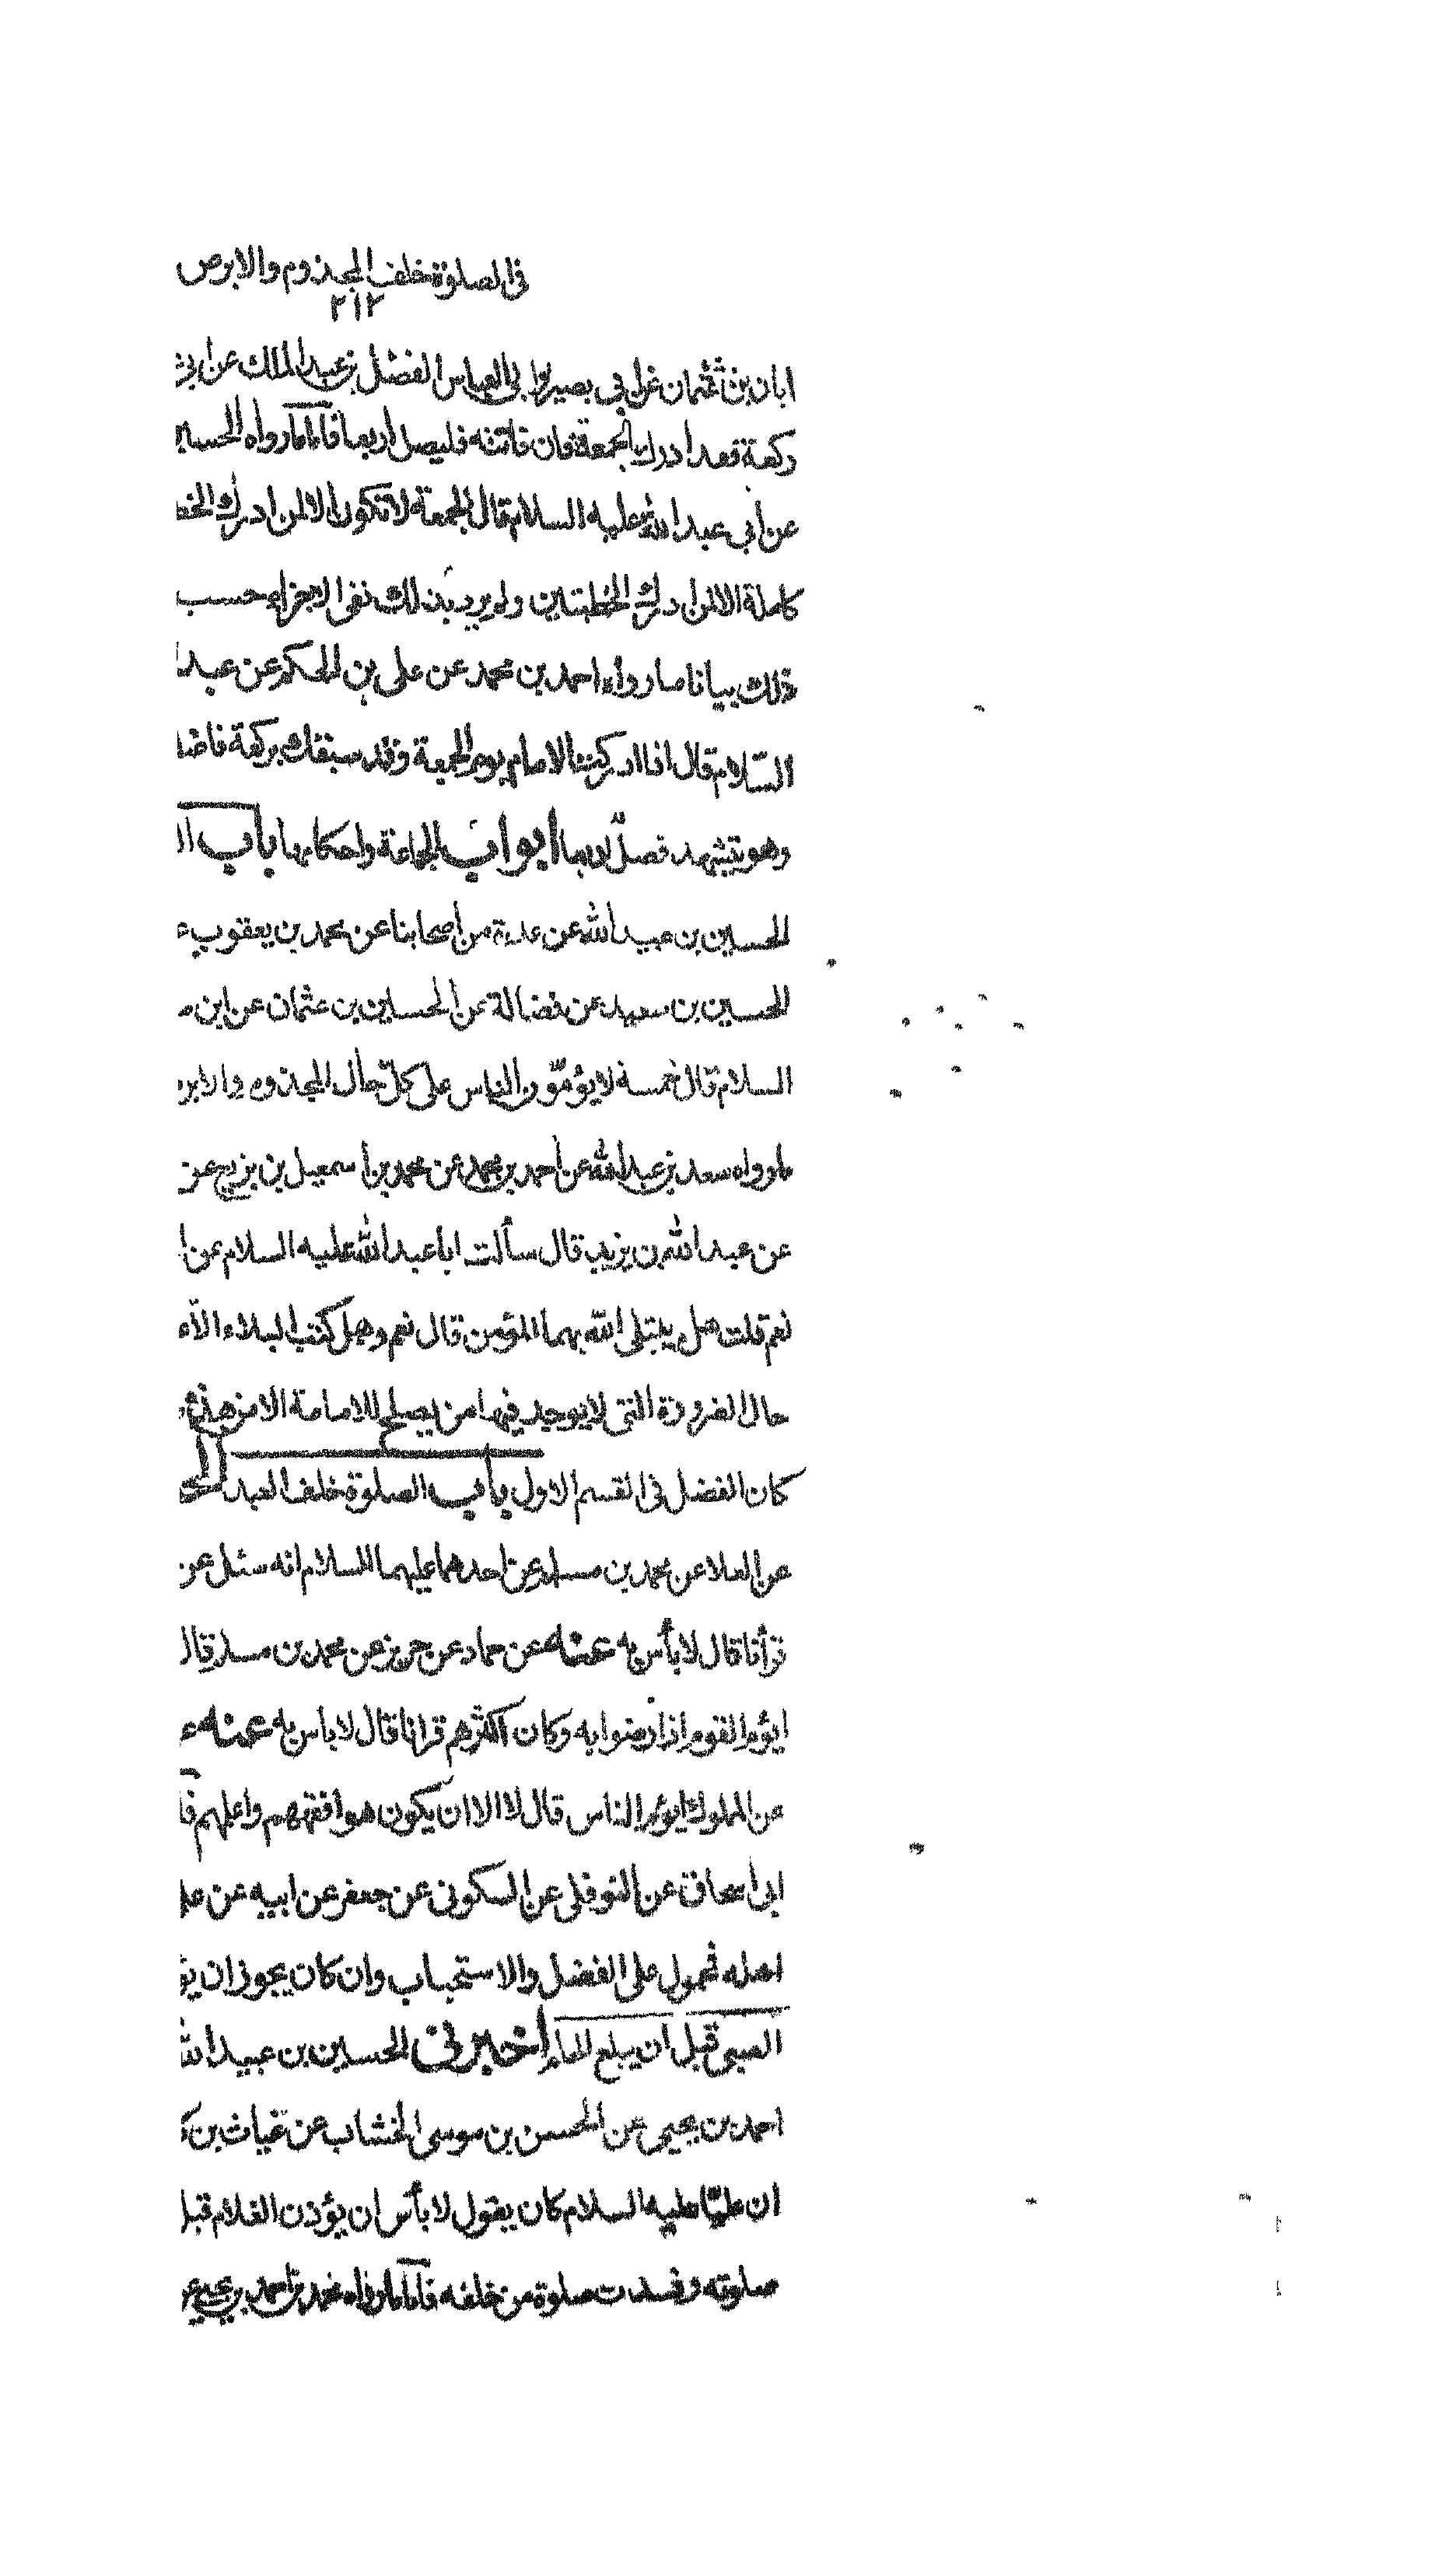 فى الصلوة خلف المجذوم والابرص
٢١٢
ابان بن عثمان عن ابي بصير وابي العباس الفضل بن عبد الملك عن ابي
ركعة فقد ادرك الجمعة فان فاتته فليصل اربعا فاما ما رواه الحسين
عن ابي عبد الله عليه السلام قال الجمعة لا تكون الا لمن ادرك
كاملة الا لمن ادرك الخطبتين ولم يرد بذلك نفى الاجزاء حسب
ذلك بيانا ما رواه احمد بن محمد عن على بن الحكم عن
السّلام قال اذا ادركت الامام يوم الجمعة وقد سبقك بركعة
وهو يتشهد فصلّ اربعا أبواب الجماعة واحكامها باب
الحسين بن عبيد الله عن عدة من اصحابنا عن محمد بن يعقوب
الحسين بن سعيد عن فضالة عن الحسين بن عثمان عن ابن
السلام قال خمسة لا يؤمّون الناس على كلّ حال المجذوم و
ما رواه سعد بن عبد الله عن احمد بن محمد عن محمد بن اسمعيل بن بزيع عن
عن عبد الله بن يزيد قال سألت ابا عبد الله عليه السلام عن
نعم قلت هل يبتلى الله بهما المؤمن قال نعم وهل كتب البلاء
حال الضرورة التى لا يوجد فيها من يصلح للامامة الا من
كان الفضل فى القسم الاول باب الصلوة خلف العبد
عن العلا عن محمد بن مسلم عن احدهما عليهما السلام انه سئل عن
قرأنا قال لا بأس به عنه عن حماد عن حريز عن محمد بن مسلم قال
ايؤم القوم اذا رضوا به وكان اكثرهم قرانا قال لا بأس به عنه
عن المملوك ايؤم الناس قال لا الا ان يكون هو افقههم واعلمهم
ابى اسحاق عن النوفلى عن السكونى عن جعفر عن ابيه عن
اهله محمول على الفضل والاستحباب وان كان يجوز ان
الصبى قبل ان يبلغ الحلم أخبرنى الحسين بن عبيد
احمد بن يحيى عن الحسن بن موسى الخشاب عن غياث بن
ان عليّا عليه السلام كان يقول لا بأس ان يؤذن الغلام قبل
صلوته وفسدت صلوة من خلفه فاما ما رواه محمد بن احمد بن يحيى